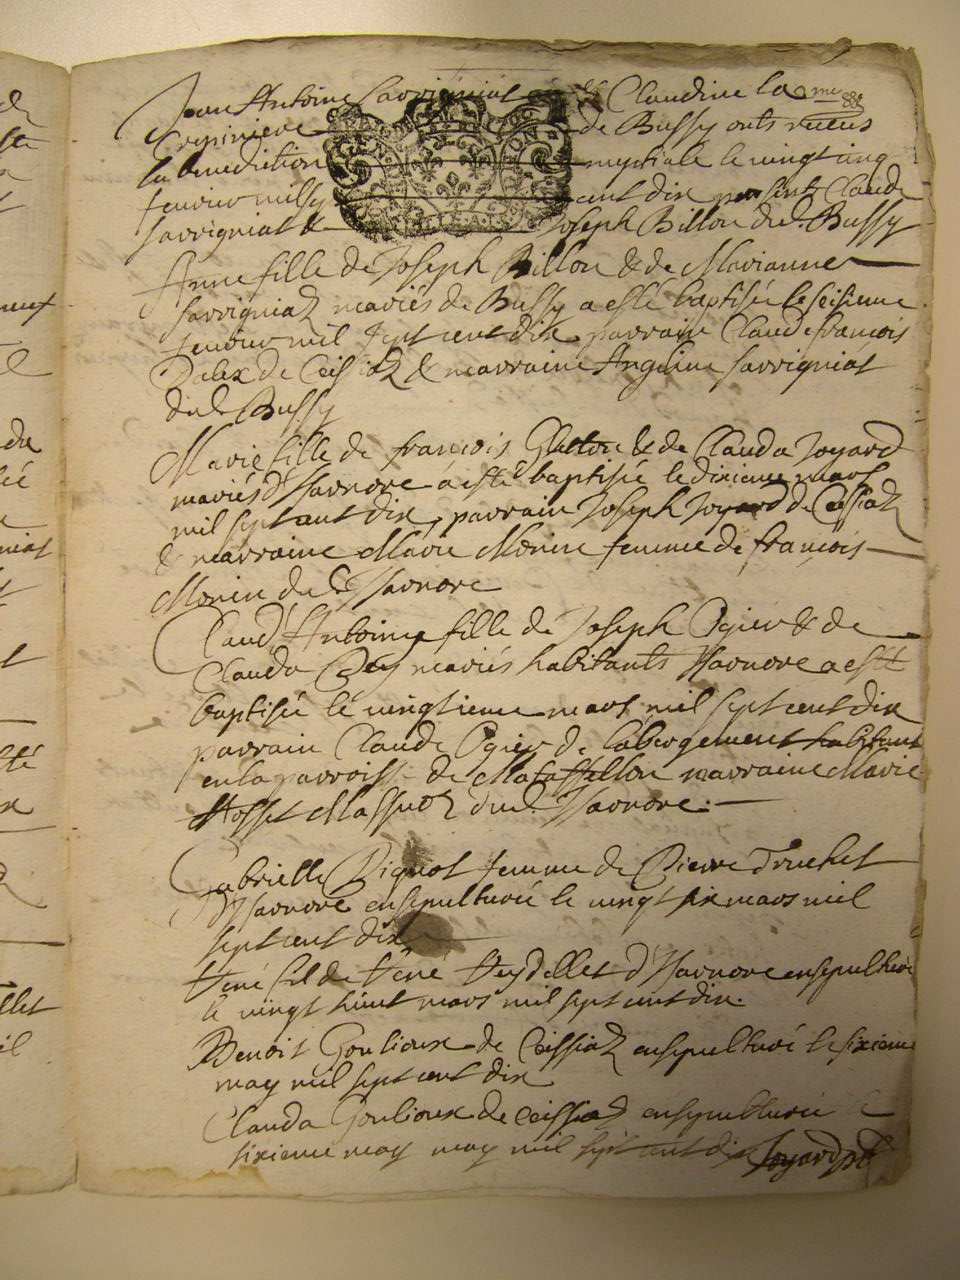 Jean Antoine Savrigniat & Claudine la me
Crepiniere de Bussy onts receus
la benediction nuptiale le vingt cinq
fevrier mil sept cent dix presents Claude
Savrigniat & Joseph Billon dud. Bussy
Anne fille de Joseph Billon & de Marianne
Savrigniat mariés de Bussy a esté baptisée le seisieme
fevrier mil sept cent dix parrain Claude francois
de Ceissiat & marraine Angeline Savrigniat
dud. Bussy
Marie fille de françois & de Clauda Joyard
mariés d'Isarnore a esté baptisée le dixieme mars
mil sept cent dix, parrain Joseph Joyard de Ceissiat
& marraine Marie Morin femme de françois
Morin dud. Isarnore
Claud' Antoine fille de Joseph Ogier & de
Clauda mariés habitants Isarnore a esté
baptisée le vingtieme mars mil sept cent dix
parrain Claude Ogier de labergement habitant
en la parroisse de Matafellon marraine Marie
Massuet dud. Isarnore.
Gabrielle Pignot femme de Pierre Druchet
d'Isarnore ensepulturée le vingt six mars mil
sept cent dix
René fil de René d'Isarnore ensepulturé
le vingt huict mars mil sept cent dix.
Benoit Goulioux de Ceissiat ensepulturé le sixieme
may mil sept cent dix
Clauda Goulioux de Ceissiat ensepulturée le
sixieme may may mil sept cent dix Joyard